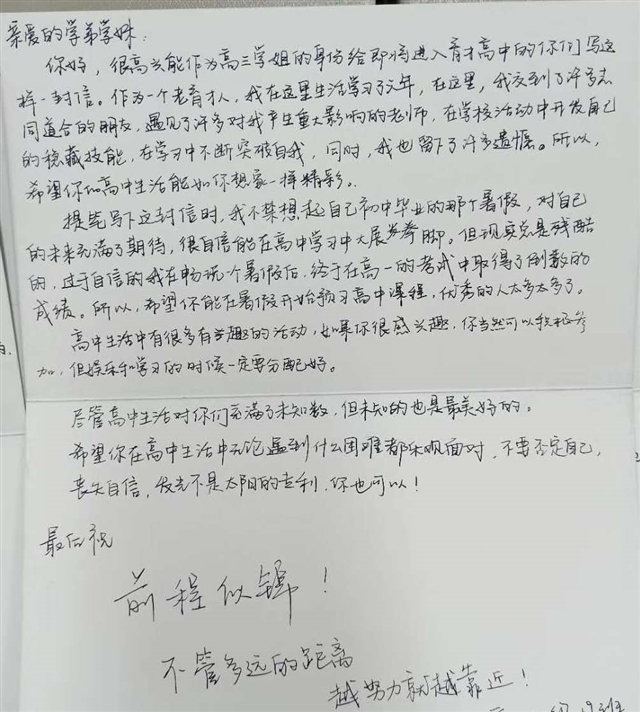 亲爱的学弟学妹：
你好，很高兴能作为高三学姐的身份给即将进入育才高中的你们写这
样一封信。作为一个老育才人，我在这里生活学习了六年，在这里，我交到了许多志
同道合的朋友，遇见了许多对我产生重大影响的老师，在学校活动中开发自己
的隐藏技能，在学习中不断突破自我，同时，我也留下了许多遗憾。所以，
希望你们高中生活能如你想象一样精彩。
提笔写下这封信时，我不禁想起自己初中毕业的那个暑假，对自己
的未来充满了期待，很自信能在高中学习中大展拳脚。但现实总是残酷
的，过于自信的我在畅玩个暑假后，终于在高一的考试中取得了倒数的
成绩。所以，希望你能在暑假开始预习高中课程，优秀的人太多太多了。
高中生活中有很多有趣的活动，如果你很感兴趣，你当然可以积极参
加，但娱乐和学习的时候一定要分配好。
尽管高中生活对你们充满了未知数，但未知的也是最美好的。
希望你在高中生活中无论遇到什么困难都乐观面对，不要否定自己，
丧失自信，发光不是太阳的专利，你也可以！
最后祝
前程似锦！
不管多远的距离
越努力就越靠近！